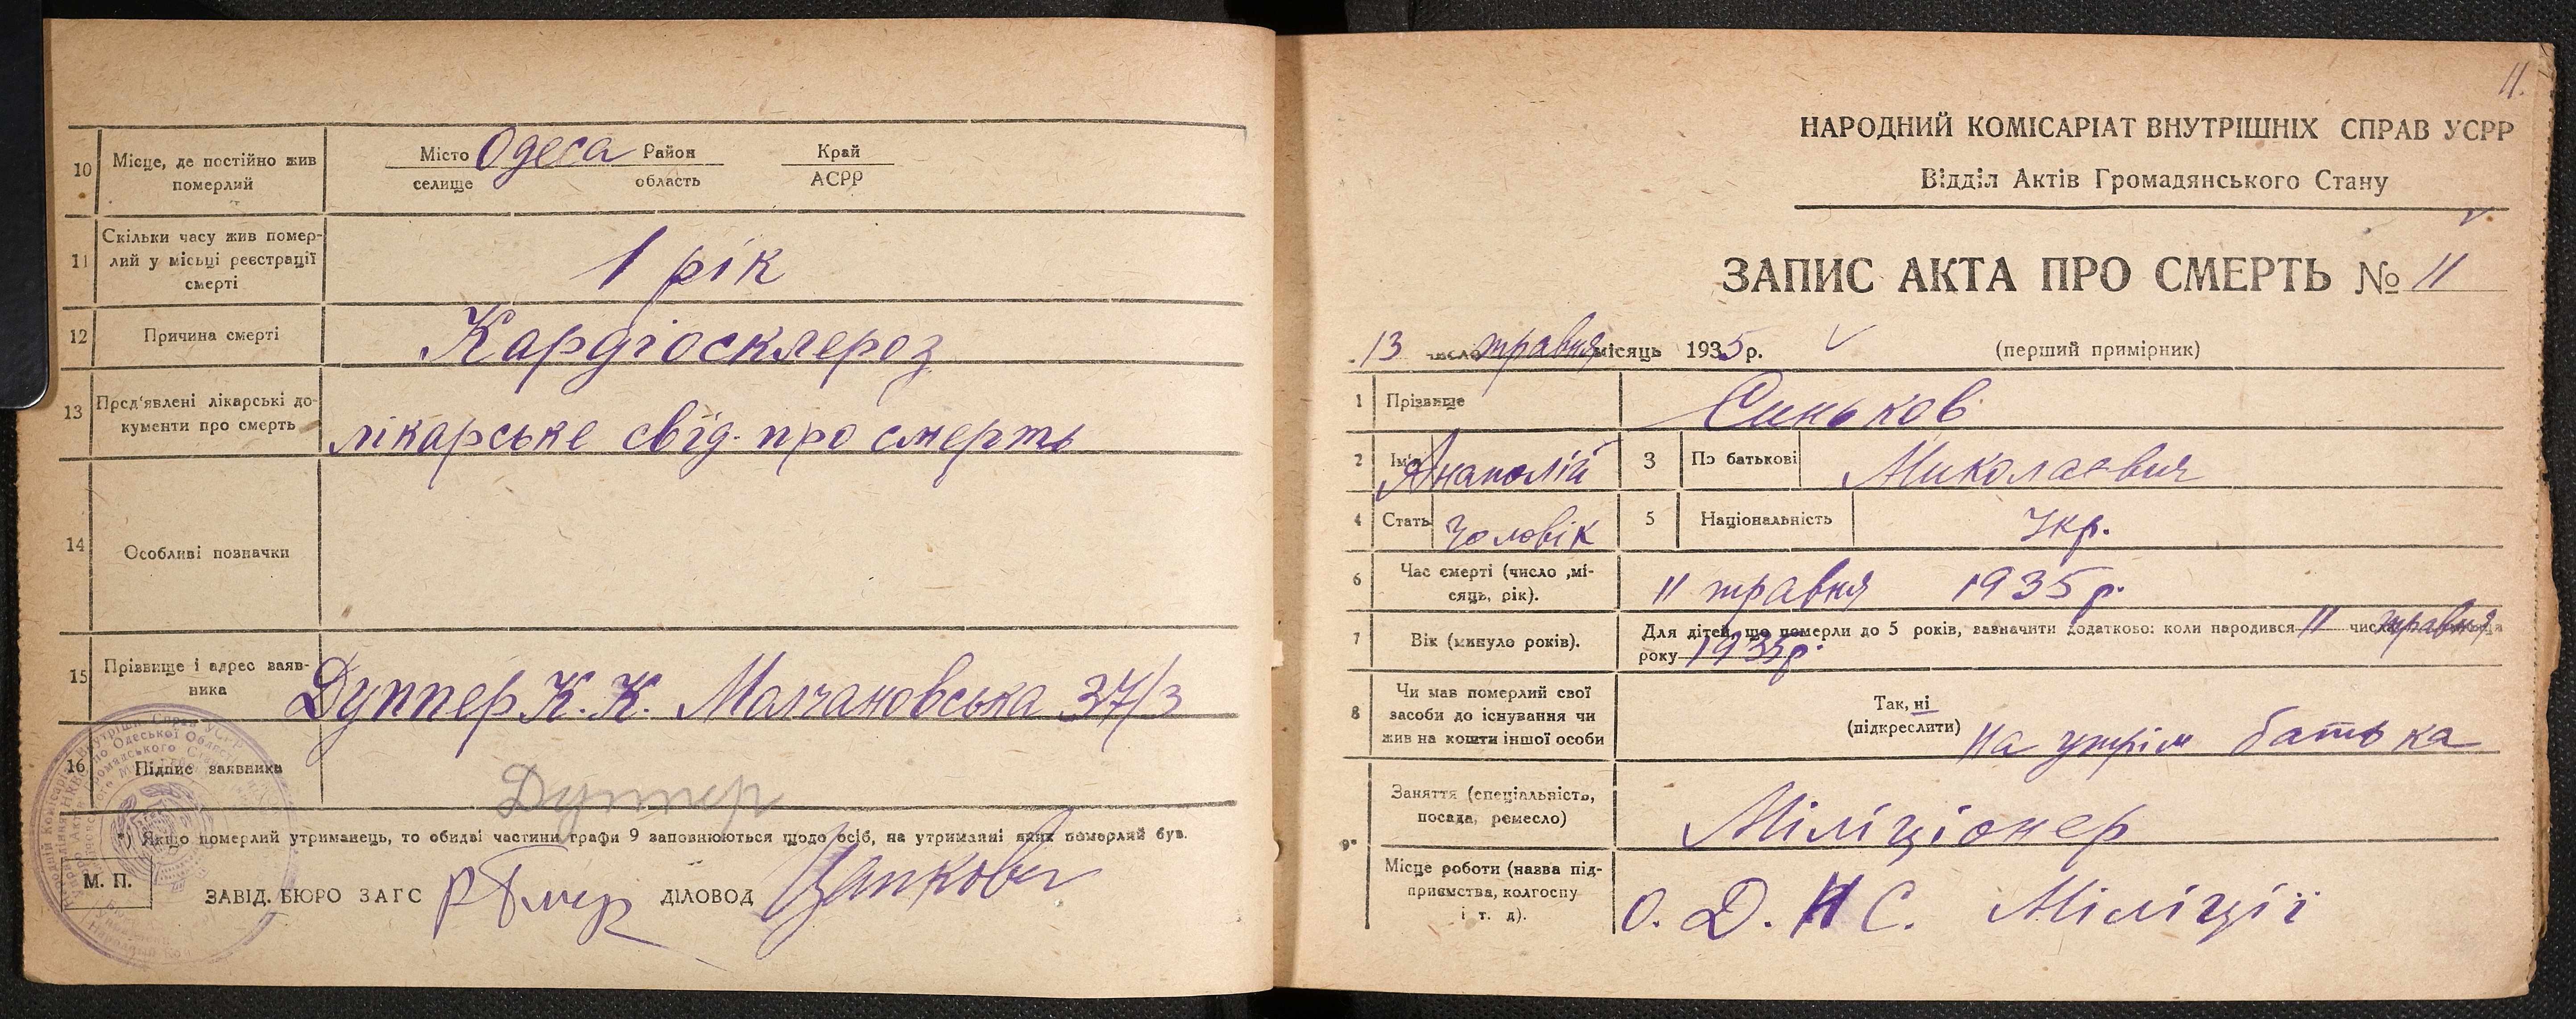 10 Місце, де постійно жив померлий
Місто Одеса Район Край
селище область АСРР
11 Скільки часу жив помер-
лий у місьці реєстрації
смерті
1 рік
12 Причина смерті Кардіосклероз
13 Пред'явлені лікарські до-
кументи про смерть
лікарське свід. про смерть
14 Особливі позначки
15 Прізвище і адрес заяв-
ника
Дуппер К. К. Молчановська 37/3
16 Підпис заявника Дуппер
*) Якщо померлий утриманець, то обидві частини графи 9 заповнюються щодо осіб, на утриманні яких померлий був.
М. П.
ЗАВІД. БЮРО ЗАГС ДІЛОВОД
11.
НАРОДНИЙ КОМІСАРІАТ ВНУТРІШНІХ СПРАВ УСРР
Відділ Актів Громадянського Стану
ЗАПИС АКТА ПРО СМЕРТЬ № 11
13 число травня місяць 1935 р. (перший примірник)
1 Прізвище Синьков
2 Ім'я Анатолій 3 По батькові Миколаевич
4 Стать Чоловік 5 Національність Укр.
6 Час смерті (число ,мі-
сяць, рік).
11 травня 1935 р.
7 Вік (минуло років).
Для дітей, що померли до 5 років, зазначити додатково: коли народився 11 числа травня
року 1935 р.
8 Чи мав померлий свої
засоби до існування чи
жив на кошти іншої особи
Так, ні
(підкреслити) На утрім батька
9*
Заняття (спеціальність,
посада, ремесло)
Міліціонер
Місце роботи (назва під-
приємства, колгоспу
і т. д).
О. Д. Н С. Міліції